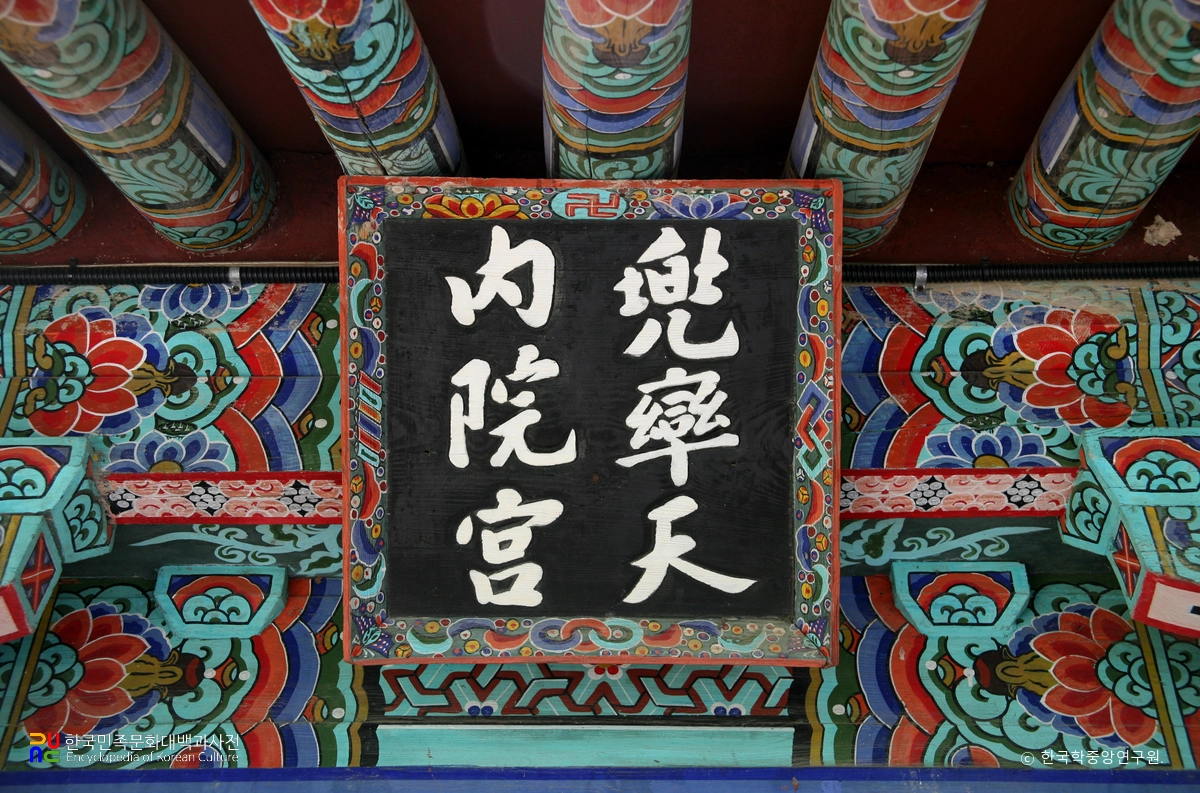 兜率天
內院宮
한국민족문화대백과사전
Encyclopedia of Korean Culture
© 한국학중앙연구원.